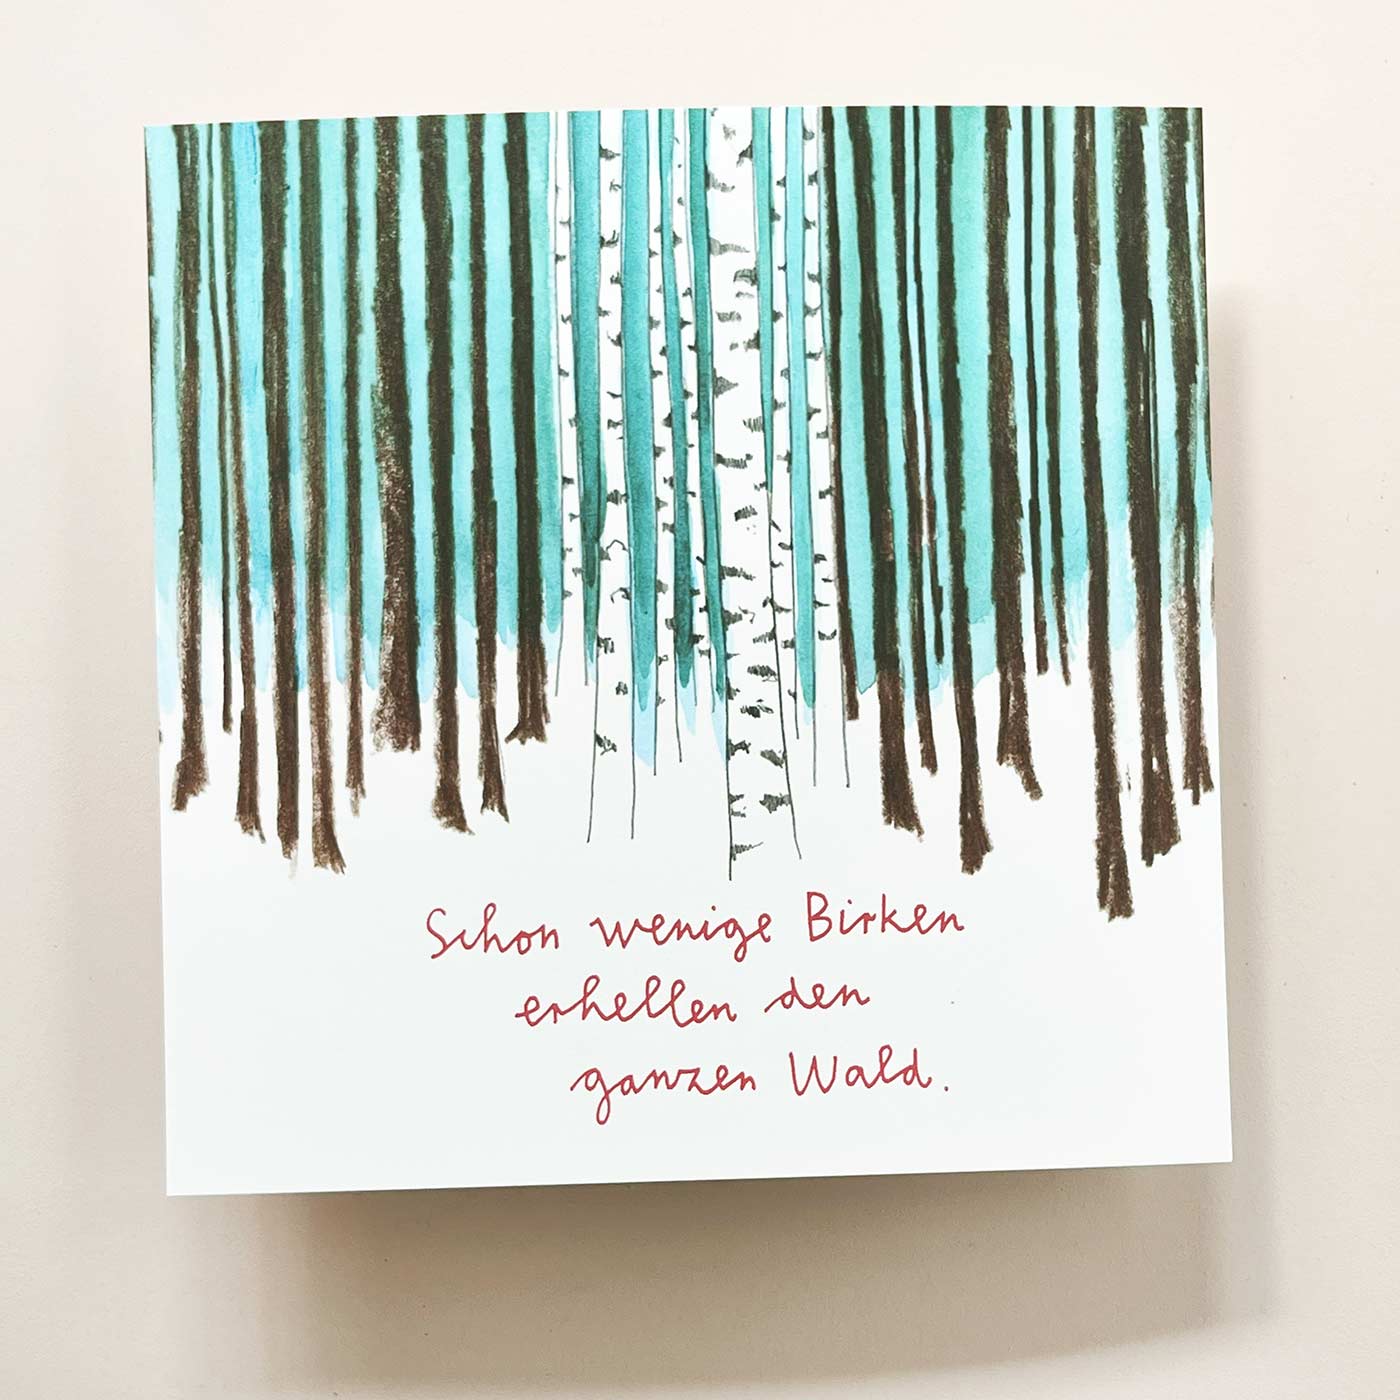 Schon wenige Birken
erhellen den
ganzen Wald.